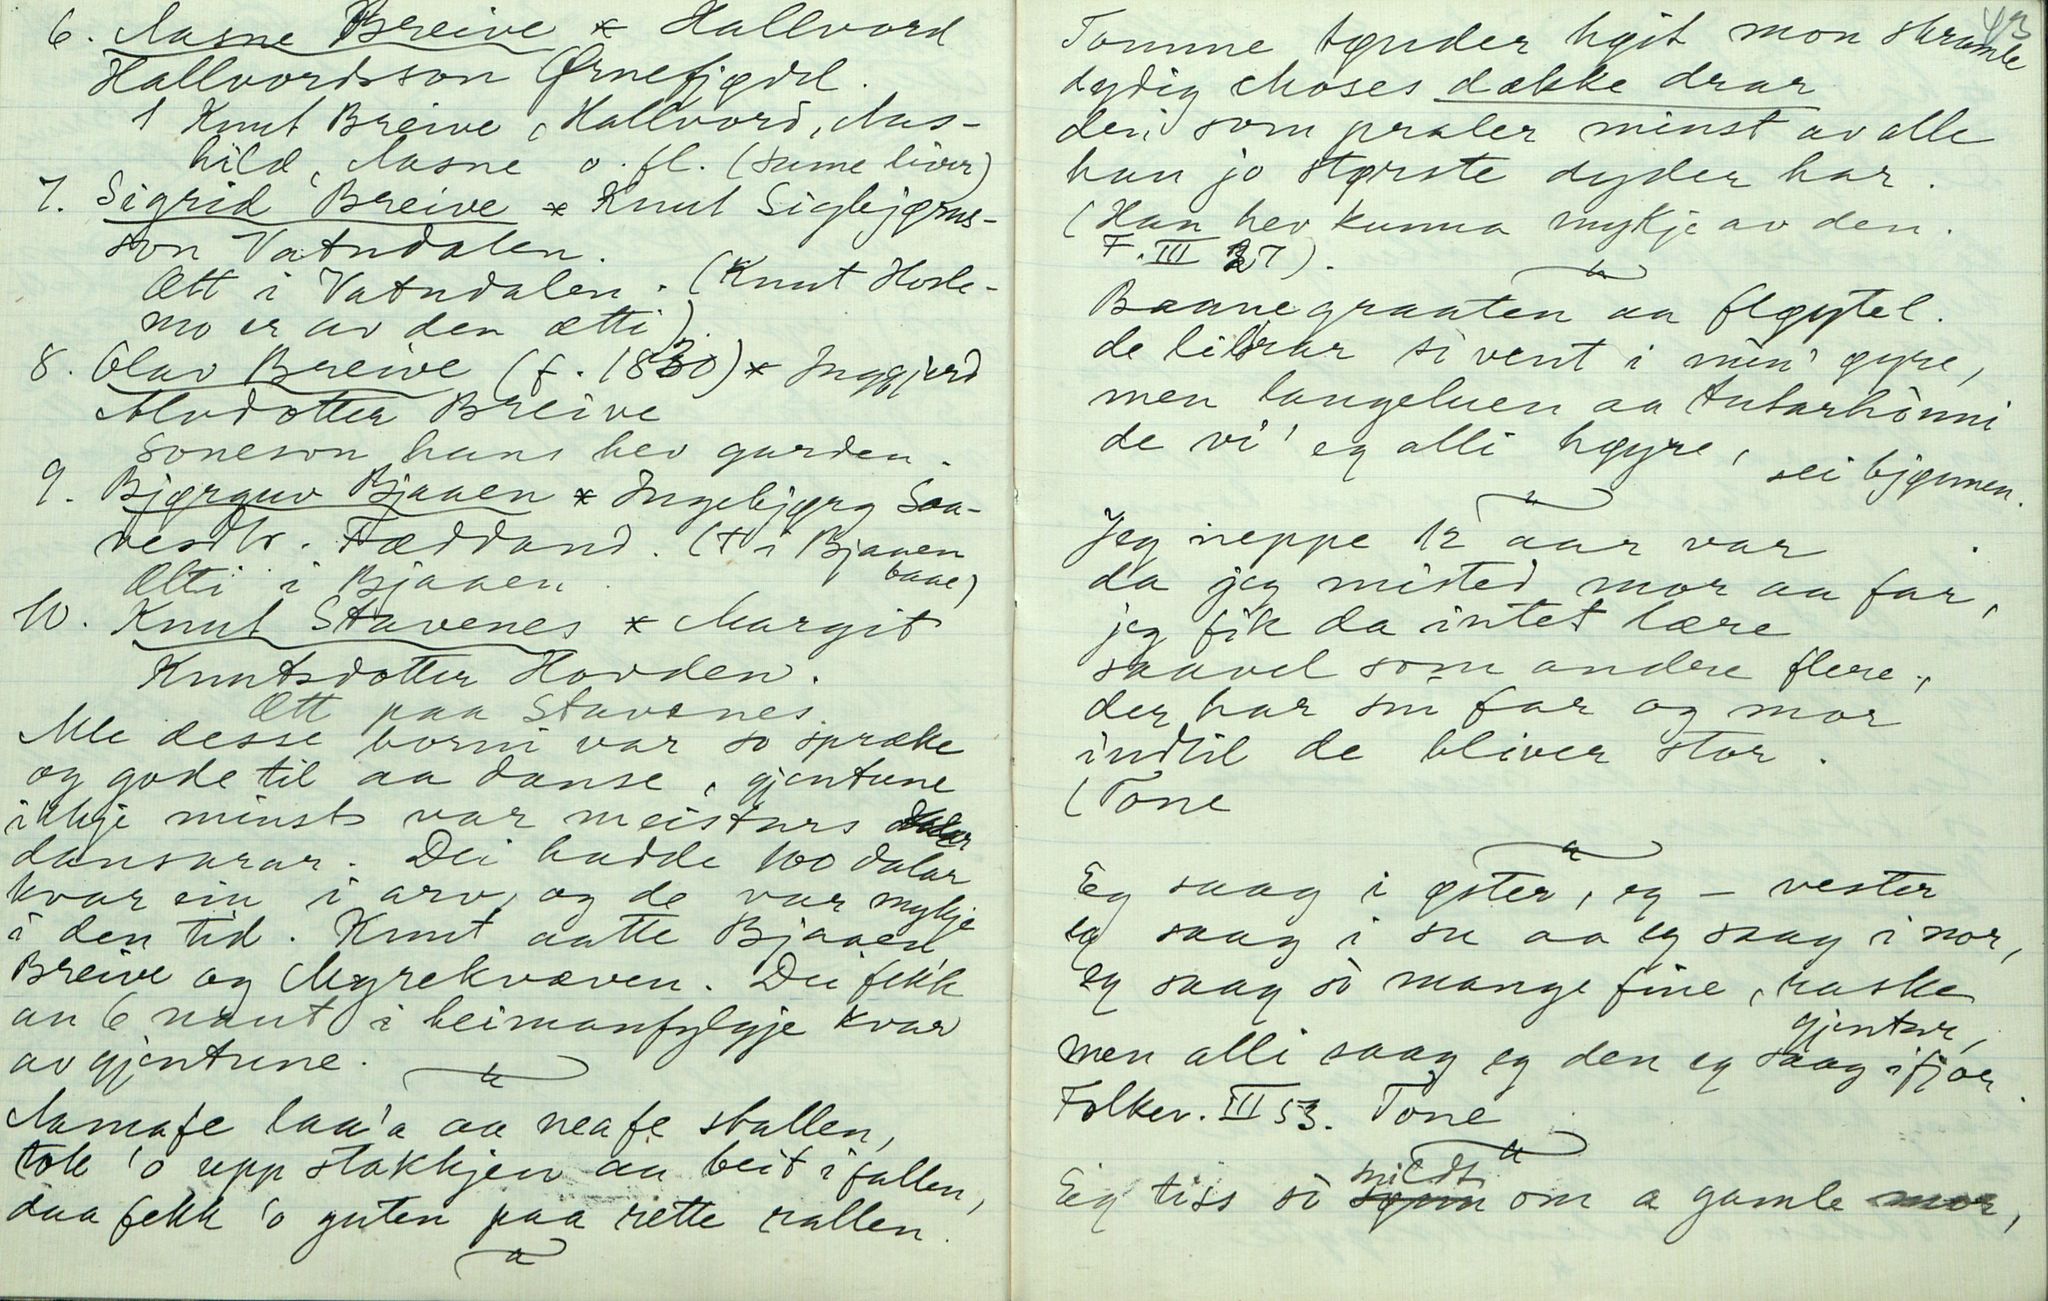 6. Aasne Breive * Hallvord
Hallvordsson Ørnefjødd.
1 Knut Breive, Hallvord, Aas-
hild, Aasne o. fl. (sume liver)
7. Sigrid Breive * Knut Sigbjørns-
son Vatndalen.
Ætt i Vatndalen. (Knut Hosle-
mo er av den ætti).
8. Olav Breive (f. 1830) * Inggjerd
Alvdotter Breive
soneson hans hev garden.
9. Bjørguv Bjaaen * Ingebjørg Saa-
vesdtr. Fæddand. (+ i Bjaaen
baae)
Ætti i Bjaaen.
10. Knut Stavenes * Margit
Knutsdotter Hovden.
Ætt paa Stavenes.
Alle desse borni var so spræke
og gode til aa danse, gjentune
ikkje minst var meisturs
dansarar. Dei hadde 100 dalar
kvar ein i arv, og de var mykje
i den tid. Knut aatte Bjaaen
Breive og Myrekvæven. Dei fekk
an 6 naut i heimanfylgje kvar
av gjentune.
Aamafe laa'a aa neafe stallen,
tok 'o upp stakkjen aa beit i fallen,
daa fekk 'o guten paa rette rallen.
43
Tomme tønder høit mon skramle
dydig Moses dække drar
den som praler minst av alle
han jo største dyder har.
(Han hev kunna mykje av den.
F. III 27).
Baanegraaten aa fløytel.
de librar si vent i min' øyre,
men langeluen aa tutarhònni
de vi' eg alli høyre,
sei bjønnen.
Jeg neppe 12 aar var
da jeg misted mor aa far,
jeg fik da intet lære
saavel som andre flere,
der har sin far og mor
indtil de bliver stor.
(Tone
Eg saag i øster, eg – vester
eg saag i su aa eg saag i nor,
eg saag sò mange fine, raske
gjentur,
men alli saag eg den eg saag ifjor.
Folkev. III 53. Tone
Eig tiss sò mildt om a gamle mor,